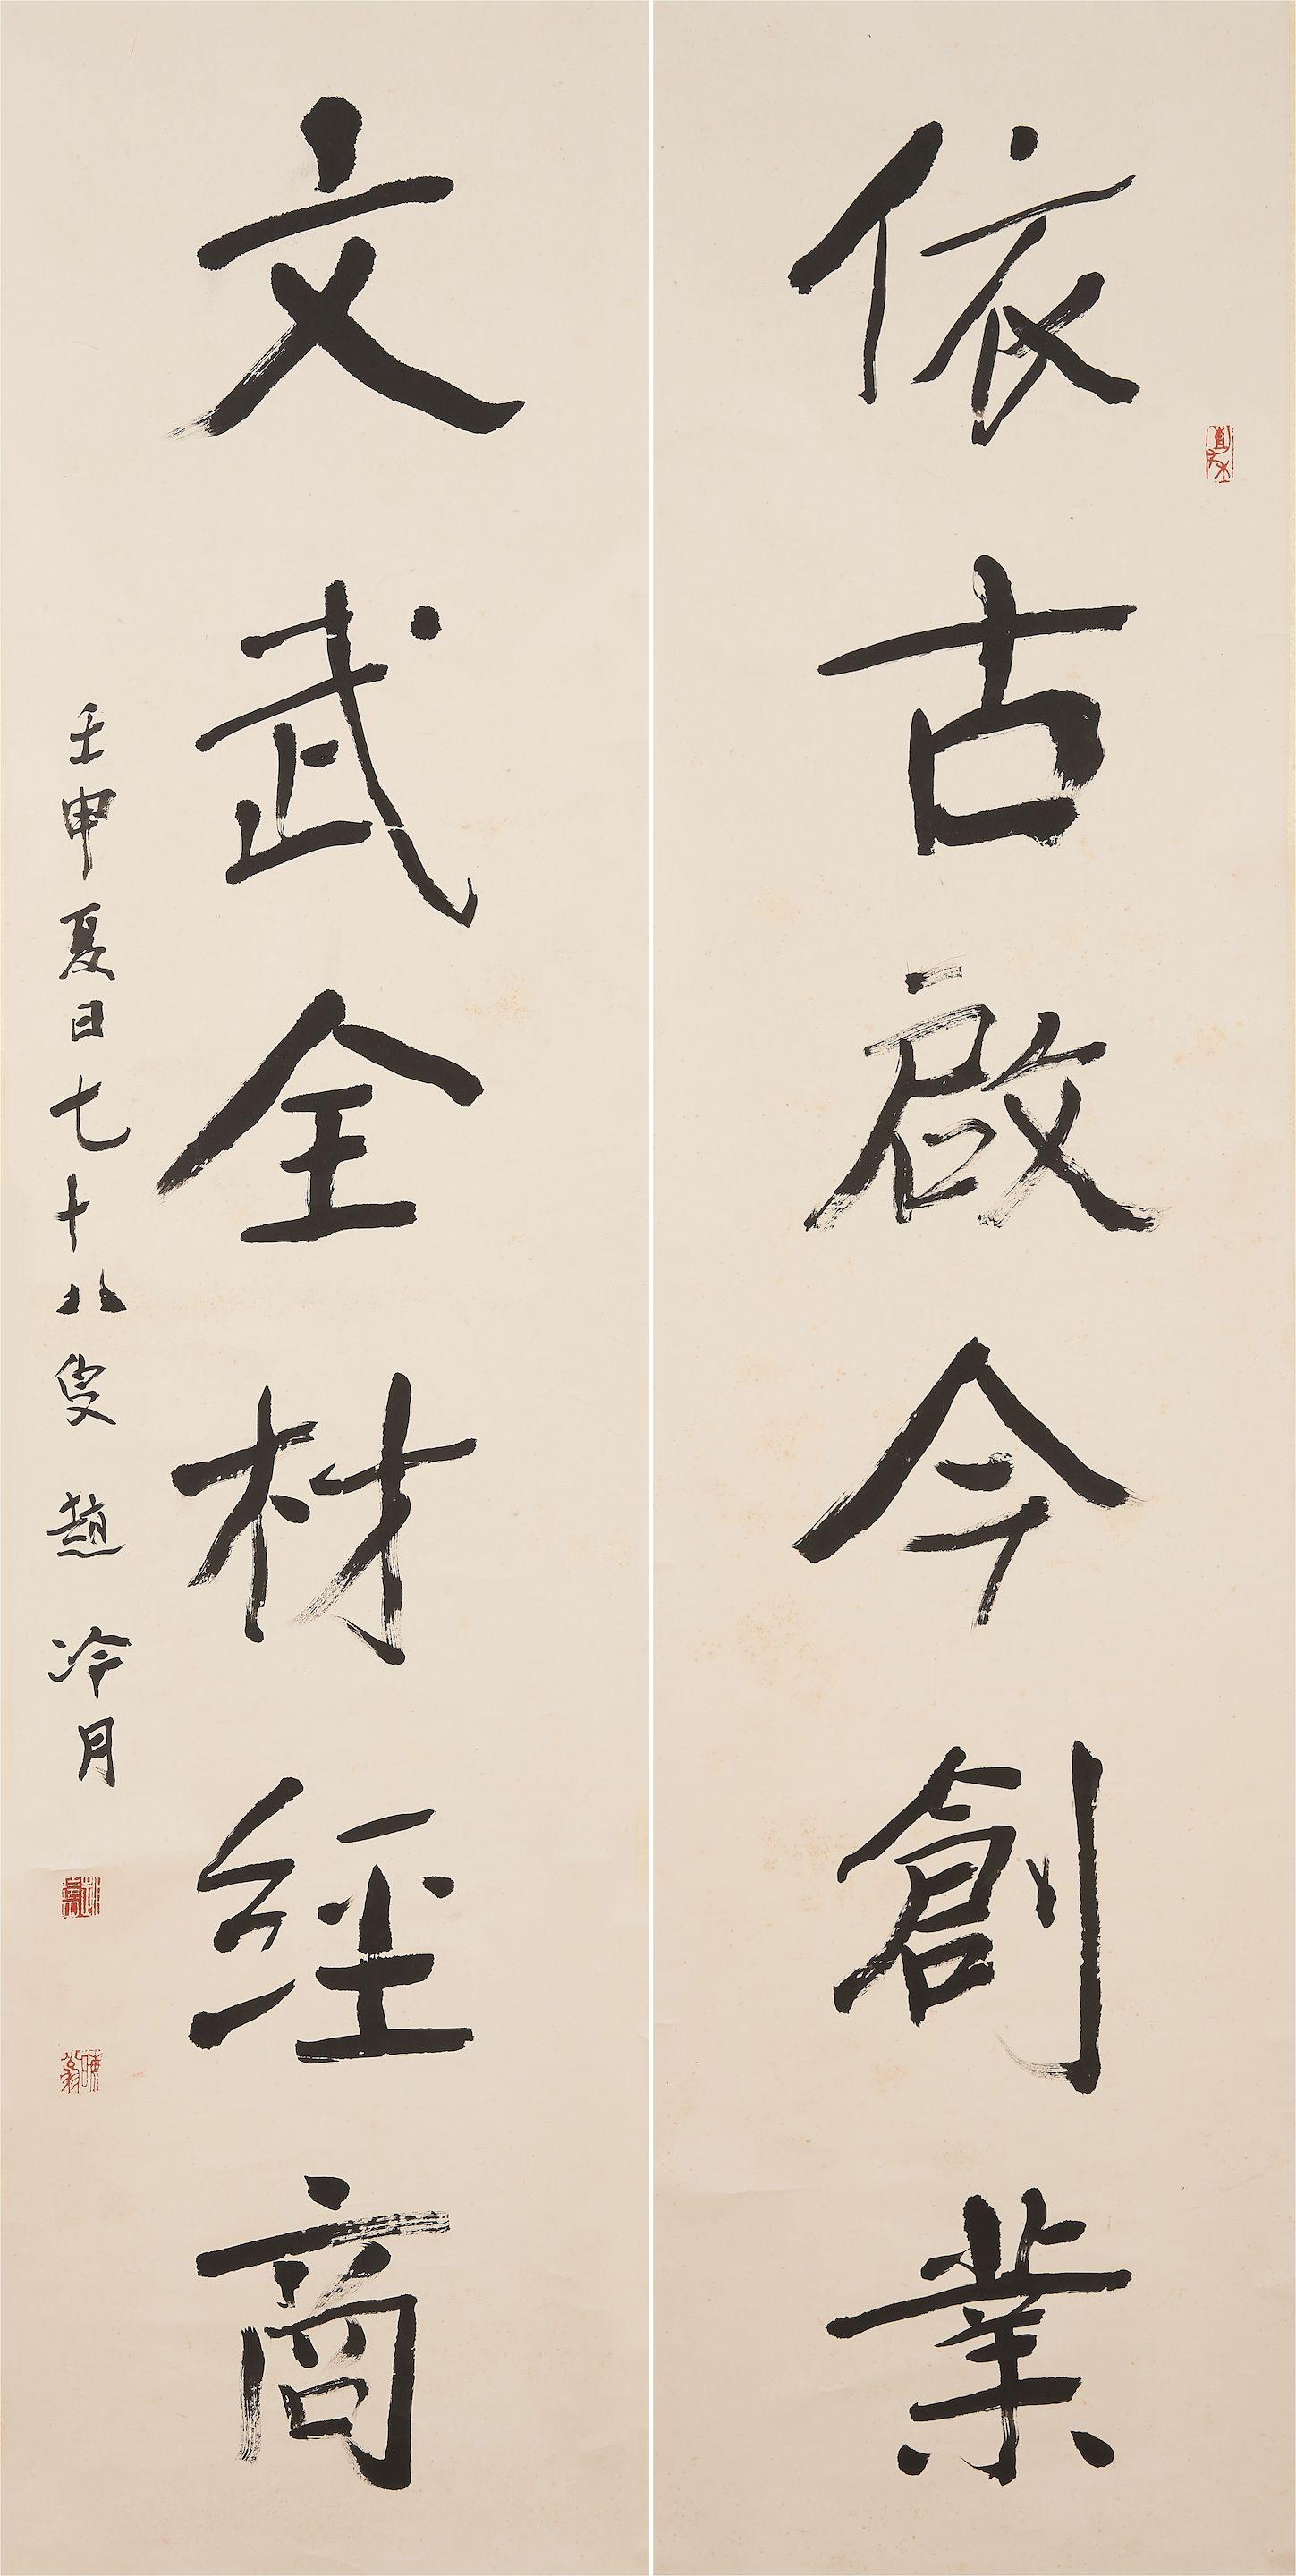 依古啟今創業
文武全材經商
壬申夏日七十八叟趙冷月